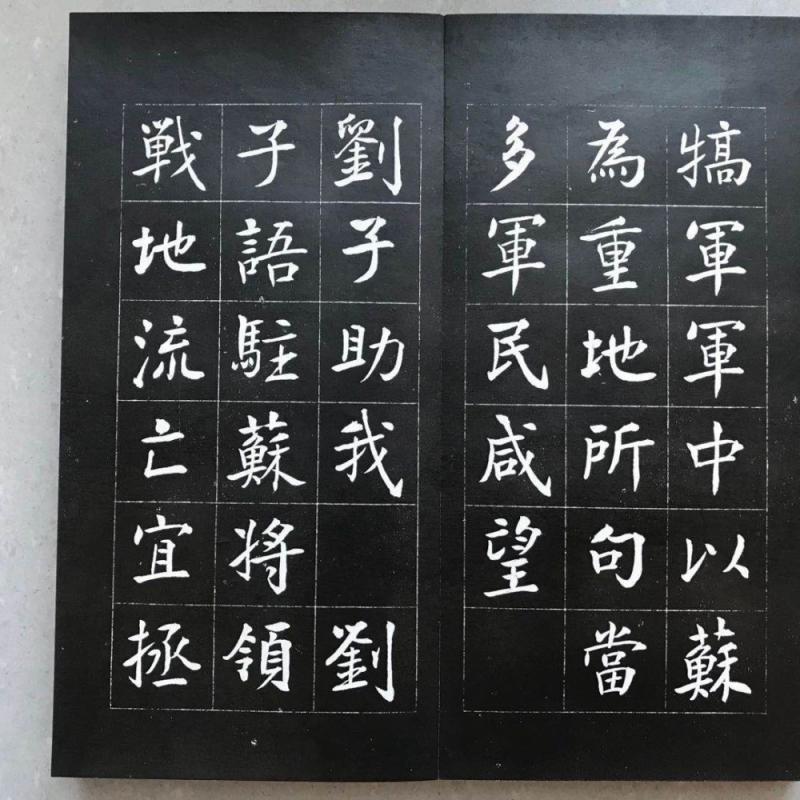 犒軍軍中以蘇
為重地所句當
多軍民咸望
劉子助我 劉
子語駐蘇将領
戦地流亡宜拯